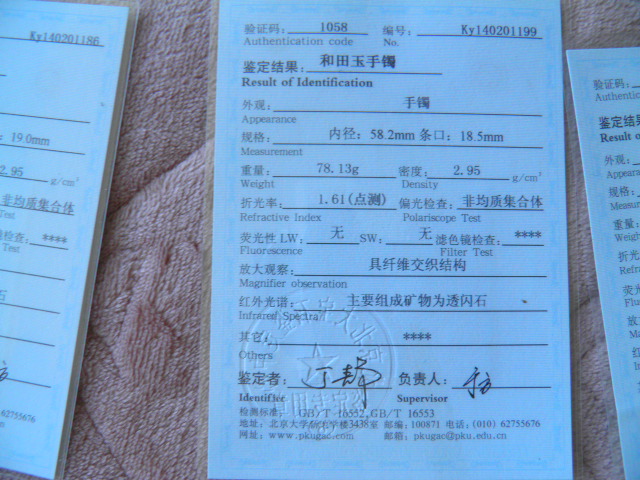 Ky140201186
19.0mm
2.95 g/cm³
非均质集合体
Test
检查: ****
Test
62755676
验证码: 1058 编号: Ky140201199
Authentication code No.
鉴定结果: 和田玉手镯
Result of Identification
外观: 手镯
Appearance
规格: 内径: 58.2mm 条口: 18.5mm
Measurement
重量: 78.13g 密度: 2.95 g/cm³
Weight Density
折光率: 1.61(点测) 偏光检查: 非均质集合体
Refractive Index Polariscope Test
荧光性 LW: 无 SW: 无 滤色镜检查: ****
Fluorescence Filter Test
放大观察: 具纤维交织结构
Magnifier observation
红外光谱: 主要组成矿物为透闪石
Infrared Spectra
其它: ****
Others
鉴定者: 负责人:
Identifier Supervisor
检测标准: GB/T 16552,GB/T 16553
地址: 北京大学 3438室 邮编: 100871 电话: (010) 62755676
网址: www.pkugac.com 邮箱: pkugac@pku.edu.cn
验证码:
Authentic
鉴定结果
Result of
外观:
Appeara
规格:
Measu
重量